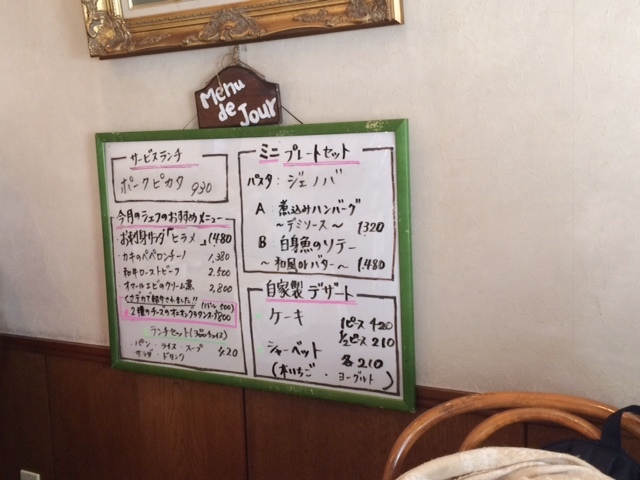 Menu
de Jour
サービスランチ
ポークピカタ 930
今月のシェフのおすすめメニュー
お刺身サラダ「ヒラメ」1480
・カキのペペロンチーノ 1,380
・和牛ローストビーフ 2,500
・オマールエビのクリーム煮 2,800
ランチセット
・パン・ライス・スープ
サラダ・ドリンク 420
ミニ プレートセット
パスタ:ジェノバ
A 煮込みハンバーグ
～デミソース～ 1320
B 白身魚のソテー
～和風orバター～ 1,480
自家製 デザート
ケーキ 1ピース 420
1/2ピース 210
シャーベット 各210
(木いちご・ヨーグルト)